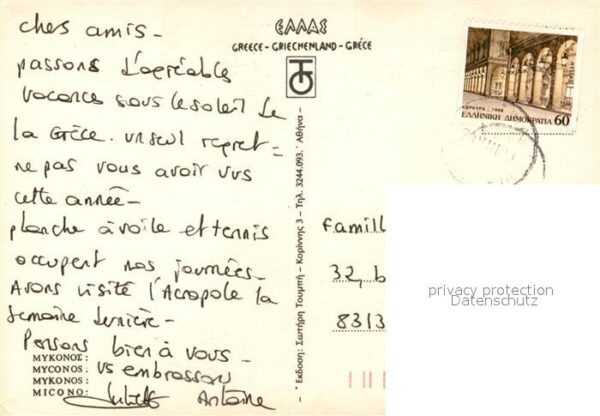 ches amis -
passons d'agréables
vacances sous le soleil de
la Grèce. un seul regret =
ne pas vous avoir vus
cette année -
planche à voile et tennis
occupent nos journées.
Avons visité l'Acropole la
semaine dernière -
Pensons bien à vous -
vs embrassons
Antoine
ΜΥΚΟΝΟΣ:
MYCONOS:
MYKONOS:
MICONO:
ΕΛΛΑΣ
GREECE - GRIECHENLAND - GRÈCE
* Εκδοση: Σωτήρη Τουμπή - Κορίννης 3 - Τηλ. 3244.093. * Αθήνα -
ΚΕΡΚΥΡΑ, 1988
ΕΛΛΗΝΙΚΗ ΔΗΜΟΚΡΑΤΙΑ 60
Famill
32, b
8313
privacy protection
Datenschutz